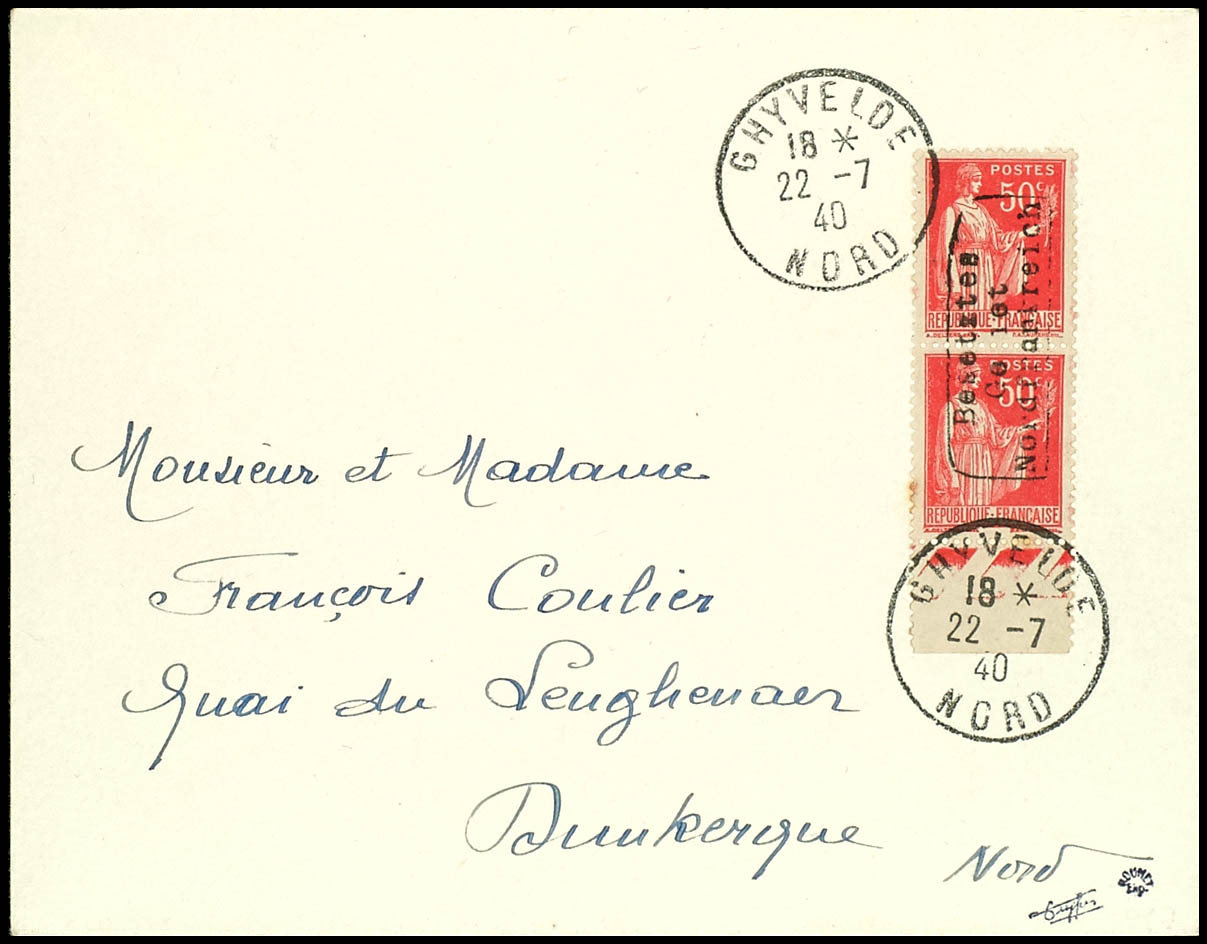 GHYVELDE
18 *
22 -7
40
NORD
POSTES
50c
REPUBLIQUE-FRANÇAISE
POSTES
50c
REPUBLIQUE-FRANÇAISE
Besetztes
Ge iet
Nordfrankreich
GHYVELDE
18 *
22 -7
40
NORD
Monsieur et Madame
François Coulier
Quai du Leughenaer
Dunkerque
Nord
ROUMET
Exp.